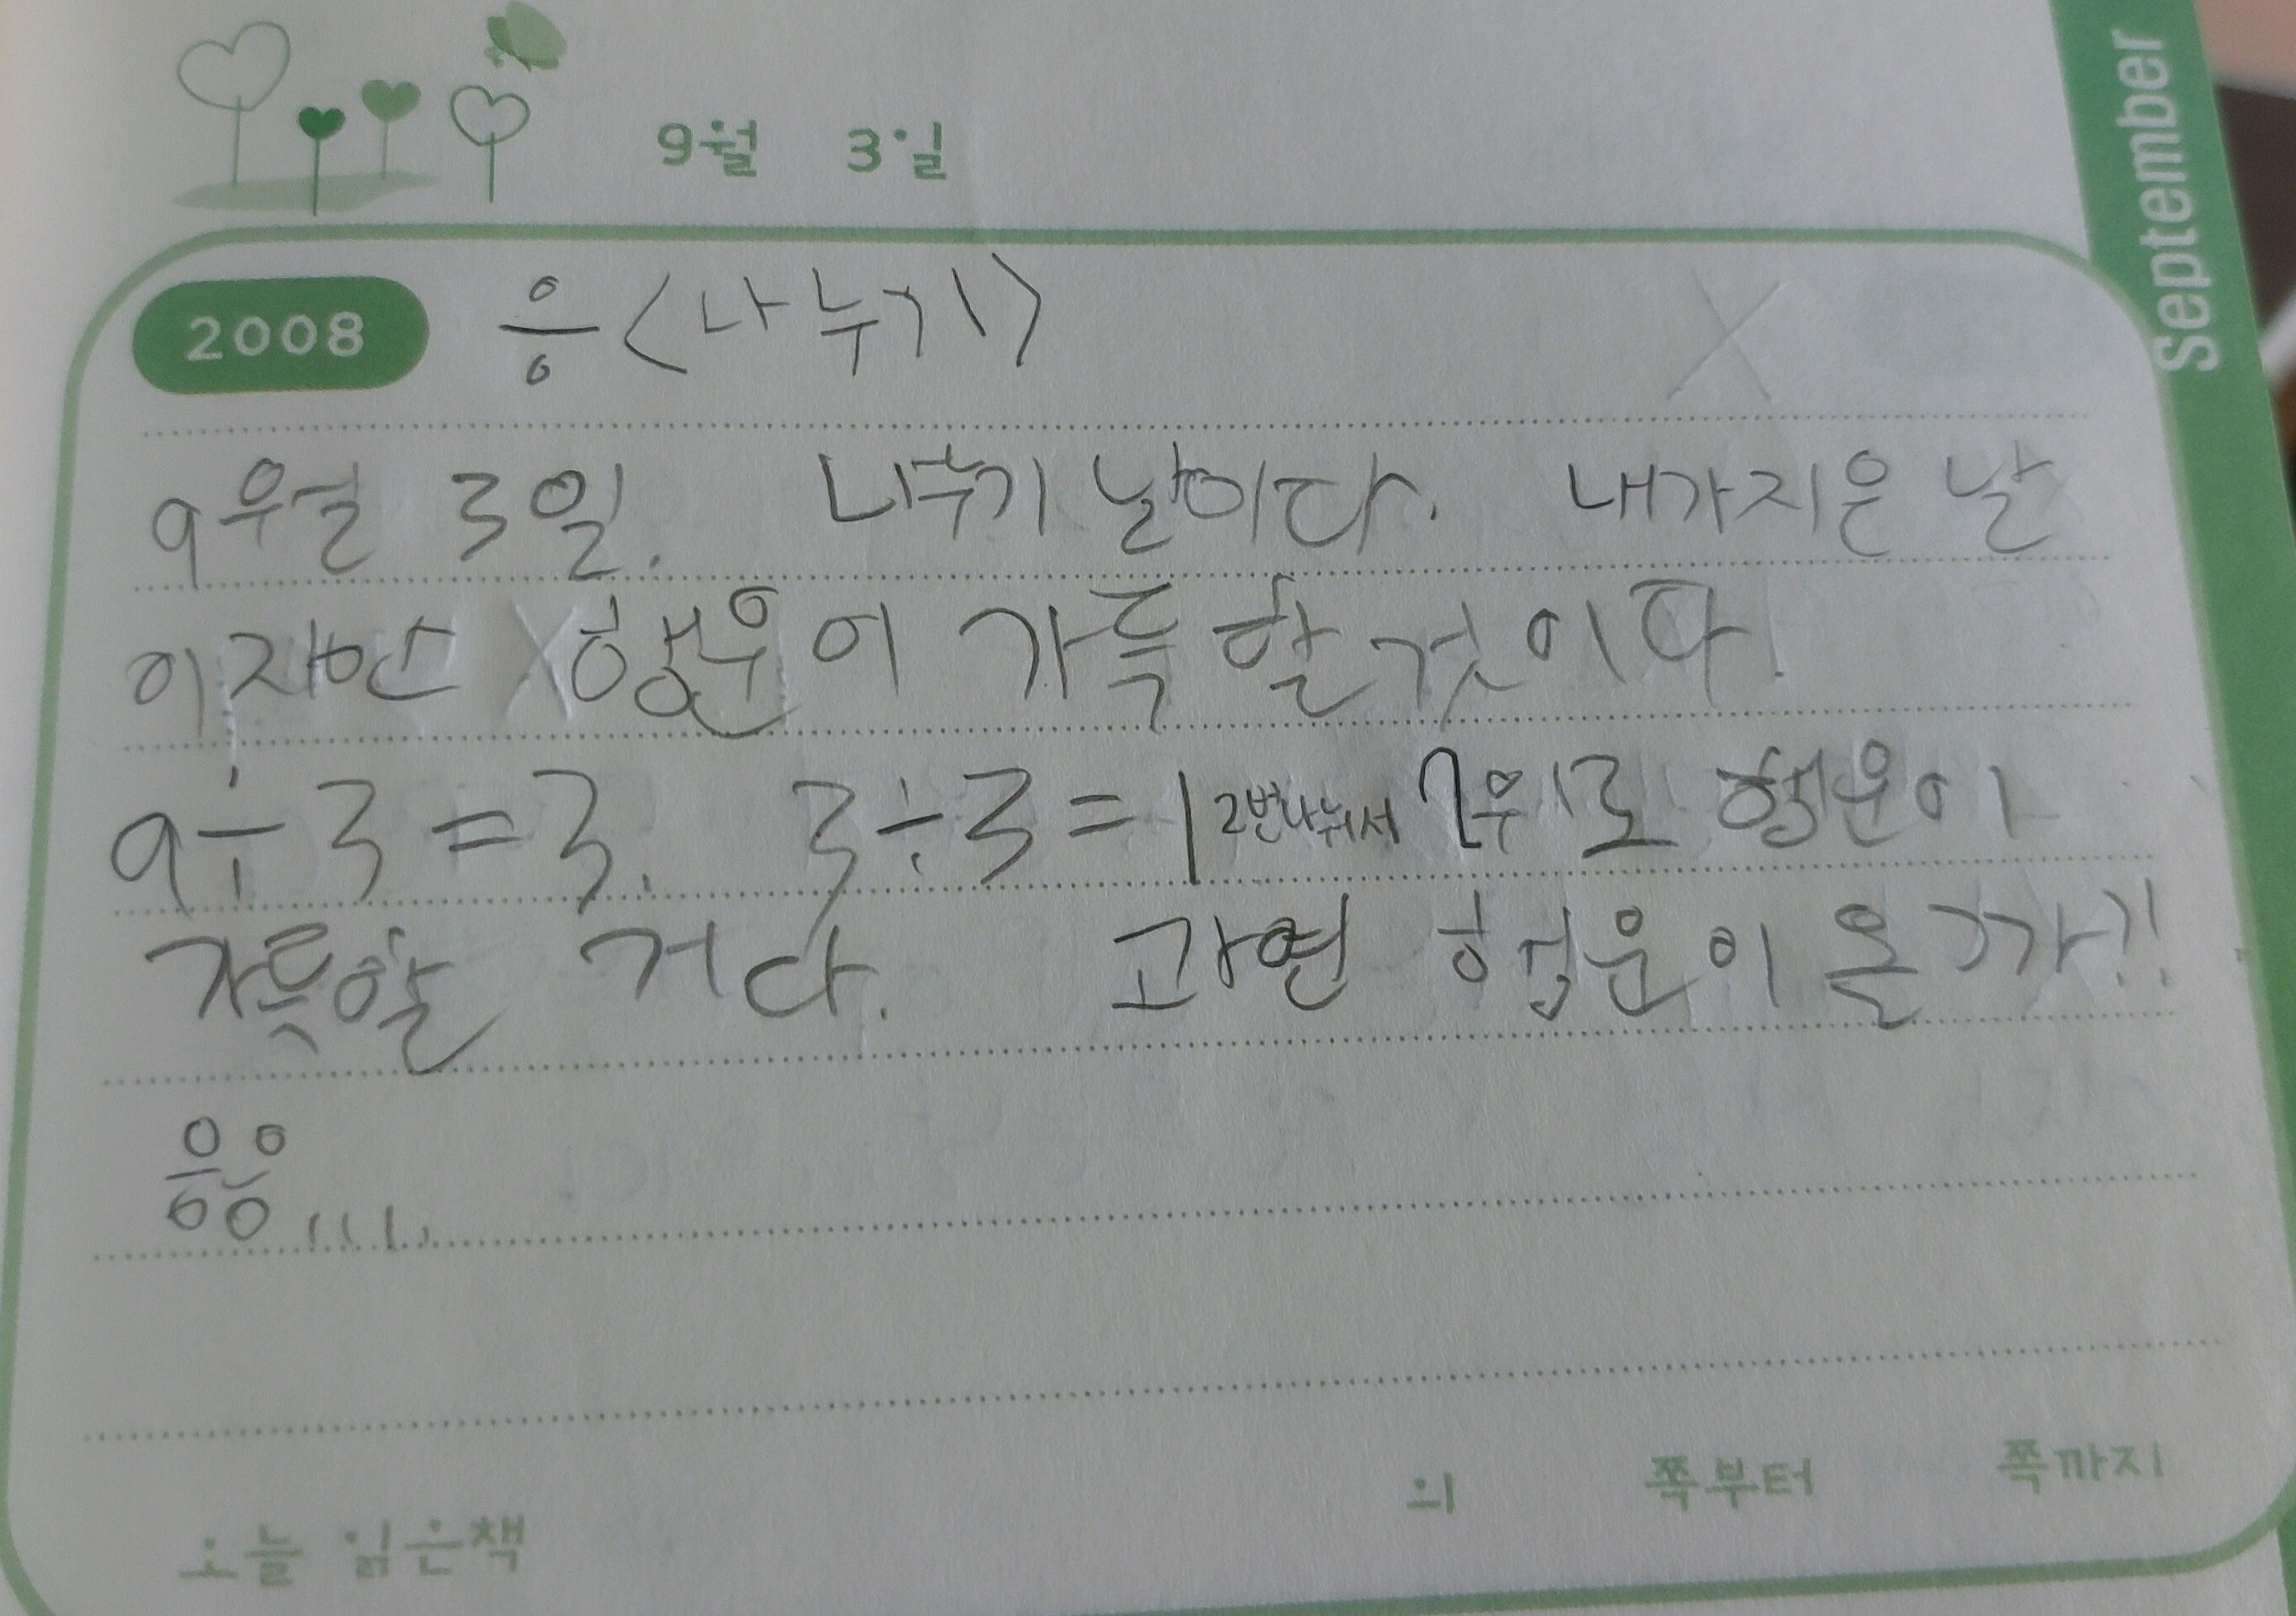 9월 3일
September
2008 응<나누기>
9월 3일. 나누기 날이다. 내가지은 날
이지만 행운이 가득할것이다.
9÷3=3. 3÷3=1 2번나눠서 행운이
가득할 거다. 과연 행운이 올까?!
음융.....
의 쪽부터 쪽까지
오늘 읽은책